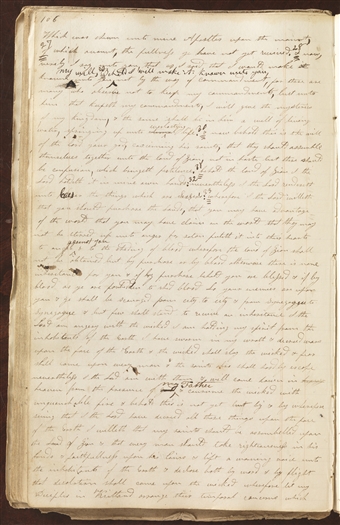 106
which was shown unto mine Apostles upon the mount
of which account the fullness ye have not yet received
verily I say unto you that as I said that I would make
my will, behold I will make it known unto you
known unto you not by the way of commandment for there are
many who observe not to keep my commandments but unto
him that keepeth my commandments I will give the mysteries
of my kingdom & the same shall be in him a well of living
water springing up unto everlasting life & now behold this is the will
of the Lord your God concerning his saints that they should assemble
themselves together unto the land of Zion not in haste lest there should
be confusion which bringeth pestilence behold the land of Zion I the
Lord holdeth it in mine own hands nevertheless I the Lord rendereth
unto Cesar the things which are Cesars wherefore I the Lord willeth
that you should purchase the lands that you may have advantage
of the world that you may have claim on the world that they may
not be stired up unto anger for satan putteth it into their hearts
to anger against you & to the sheding of blood wherefore the land of Zion shall
not be obtained but by purchase or by blood otherwise there is none
inheritance for you & if by purchase behold you are blessed & if by
blood as ye are forbiden to shed blood lo your enemies are upon
you & ye shall be scourged from city to city & from synagogue to
synagogue & but few shall stand to receive an inheritance I the
Lord am angry with the wicked I am holding my spirit from the
inhabitants of the Earth I have sworn in my wrath & decreed wars
upon the face of the Earth & the wicked shall slay the wicked & fear
shall come upon every man & the saints also shall hardly escape
nevertheless I the Lord am with them & will come down in heaven
from the presence my Father & consume the wicked with
unquenchable fire & behold this is not yet but by & by wherefore
seeing that I the Lord have decreed all these things upon the face
of the Earth I willeth that my saints should be assembled upon
the land of Zion & that every man should take righteousness in his
hands & faithfullness upon his loins & lift a warning voice unto
the inhabitants of the Earth & declare both by word & by flight
that desolation shall come upon the wicked wherefore let my
Disciples in Kirtland arrange their temporal concerns which